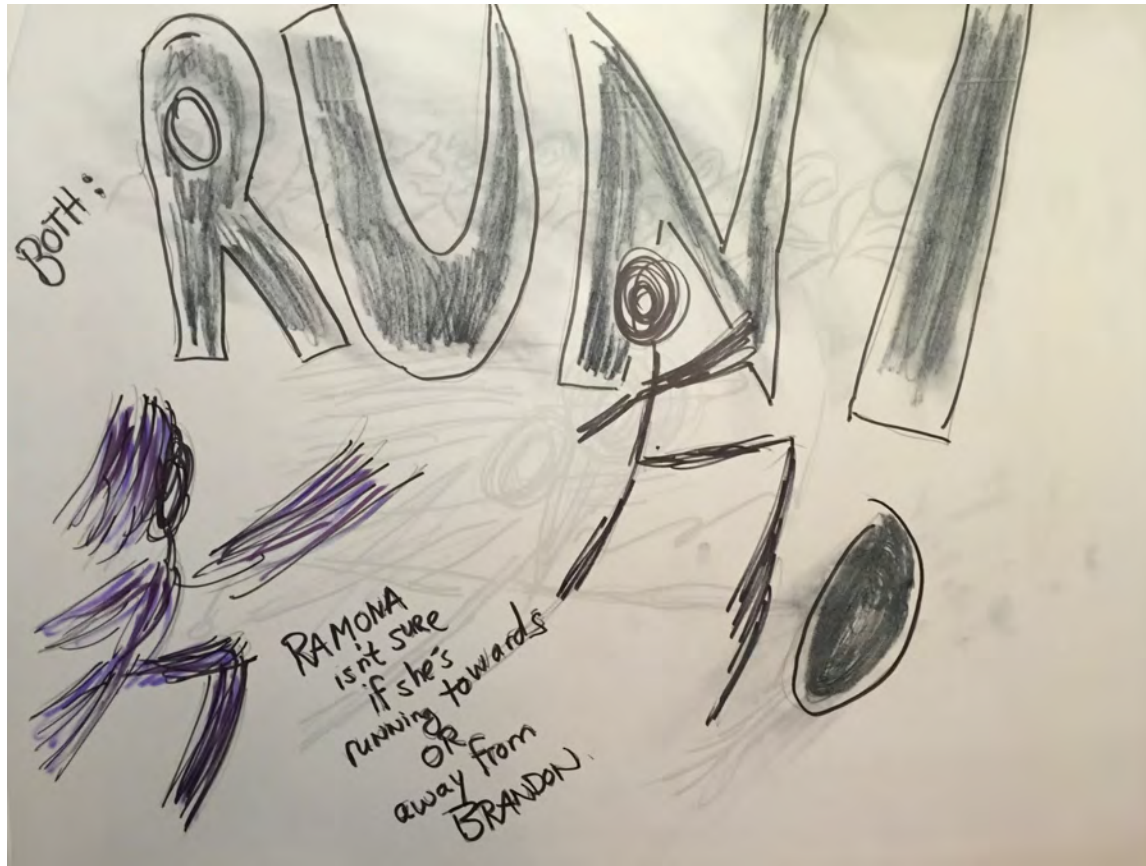 BOTH:
RUN!
RAMONA
isn't sure
if she's
running towards
OR
away from
BRANDON.